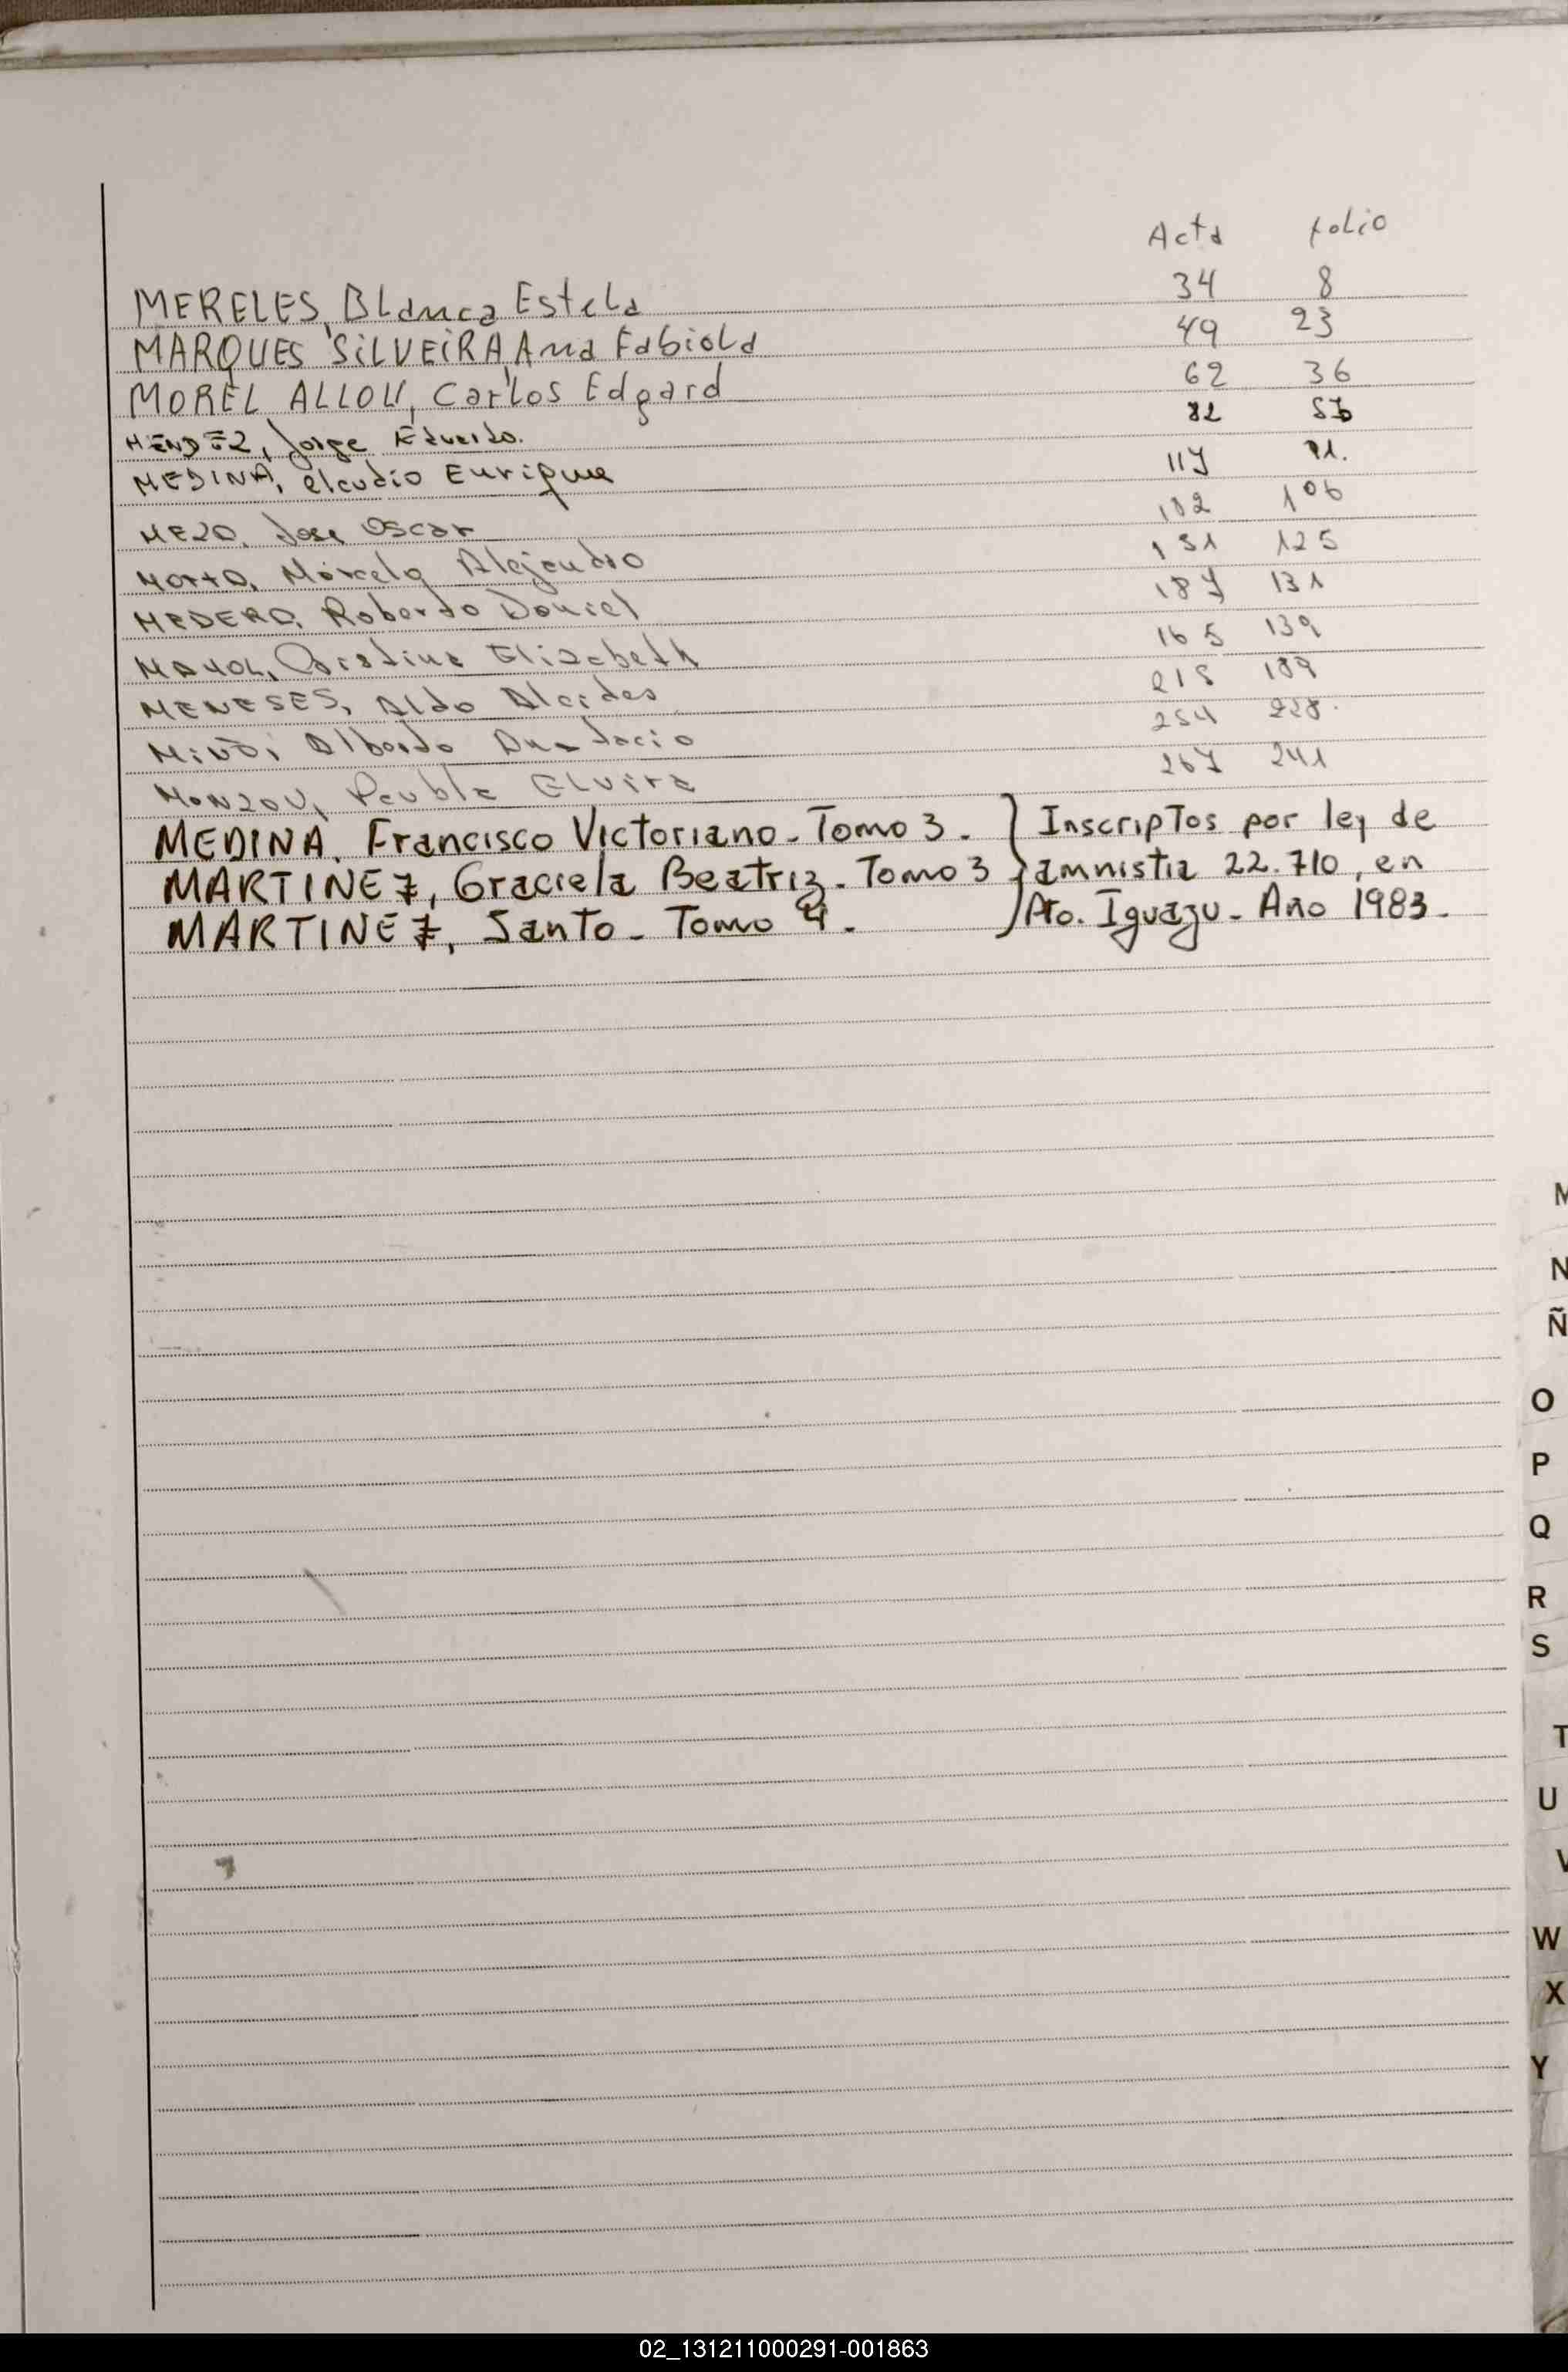 Acta folio
MERELES, Blanca Estela 34 8
MARQUES SiLVEiRA, Ana Fabiola 49 23
MOREL ALLOU, Carlos Edgard 62 36
MENDEZ, Jorge Eduardo. 82 56
MEDINA, Claudio Enrique 117 91.
MEZO, Jose Oscar 132 106
MOTTO, Marcelo Alejandro 151 125
MEDERO, Roberto Daniel 157 131
MAYOL, Cristina Elizabeth 165 139
MENESES, Aldo Alcides 215 189
MiÑO, Alberto 254 228.
MONZON, Elvira 267 241
MEDINA, Francisco Victoriano - Tomo 3. } Inscriptos por ley de
MARTINEZ, Graciela Beatriz - Tomo 3 } amnistia 22.710, en
MARTINEZ, Santo - Tomo 4. } Pto. Iguazu - Año 1983.
M
N
Ñ
O
P
Q
R
S
T
U
V
W
X
Y
02_131211000291-001863